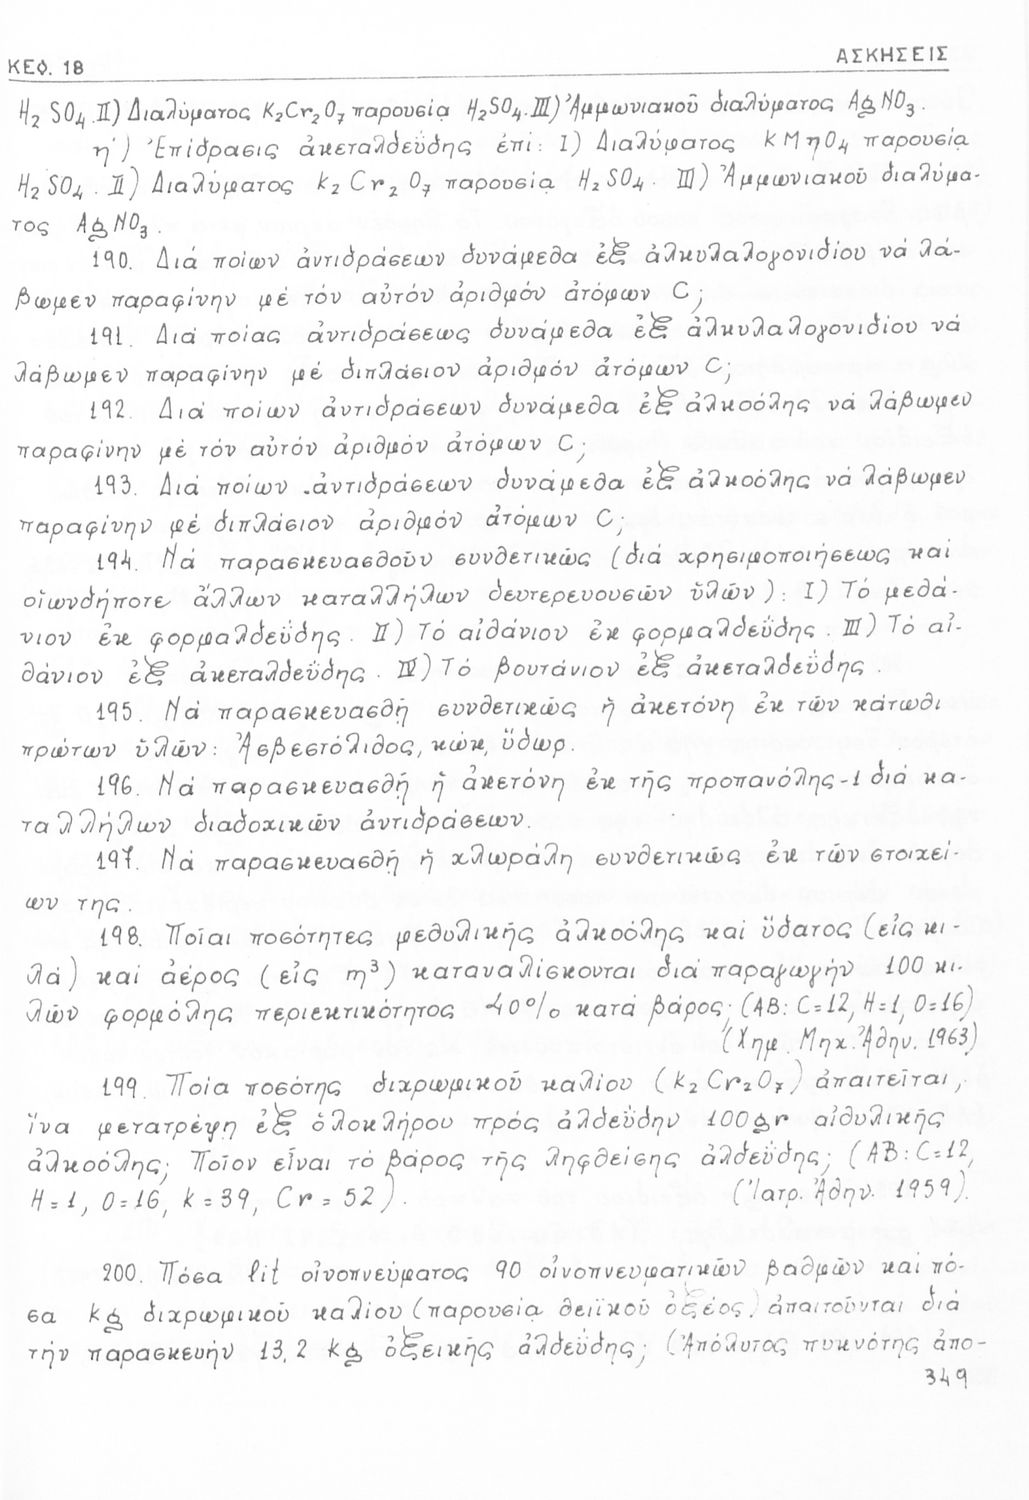 ΚΕΦ. 18
ΑΣΚΗΣΕΙΣ
H₂SO₄. II) Διαλύματος K₂Cr₂O₇ παρουσίᾳ H₂SO₄. III) Ἀμμωνιακοῦ διαλύματος AgNO₃.
η΄) Ἐπίδρασις ἀκεταλδεΰδης ἐπί: I) Διαλύματος KMηO₄ παρουσίᾳ
H₂SO₄. II) Διαλύματος K₂Cr₂O₇ παρουσίᾳ H₂SO₄. III) Ἀμμωνιακοῦ διαλύμα-
τος AgNO₃.
190. Διά ποίων ἀντιδράσεων δυνάμεθα ἐξ ἀλκυλαλογονιδίου νά λά-
βωμεν παραφίνην μέ τόν αὐτόν ἀριθμόν ἀτόμων C;
191. Διά ποίας ἀντιδράσεως δυνάμεθα ἐξ ἀλκυλαλογονιδίου νά
λάβωμεν παραφίνην μέ διπλάσιον ἀριθμόν ἀτόμων C;
192. Διά ποίων ἀντιδράσεων δυνάμεθα ἐξ ἀλκοόλης νά λάβωμεν
παραφίνην μέ τόν αὐτόν ἀριθμόν ἀτόμων C;
193. Διά ποίων ἀντιδράσεων δυνάμεθα ἐξ ἀλκοόλης νά λάβωμεν
παραφίνην μέ διπλάσιον ἀριθμόν ἀτόμων C;
194. Νά παρασκευασθοῦν συνθετικῶς (διά χρησιμοποιήσεως καί
οἱωνδήποτε ἄλλων καταλλήλων δευτερευουσῶν ὑλῶν): I) Τό μεθά-
νιον ἐκ φορμαλδεΰδης. II) Τό αἰθάνιον ἐκ φορμαλδεΰδης. III) Τό αἰ-
θάνιον ἐξ ἀκεταλδεΰδης. IV) Τό βουτάνιον ἐξ ἀκεταλδεΰδης.
195. Νά παρασκευασθῇ συνθετικῶς ἡ ἀκετόνη ἐκ τῶν κάτωθι
πρώτων ὑλῶν: Ἀσβεστόλιθος, κώκ, ὕδωρ.
196. Νά παρασκευασθῇ ἡ ἀκετόνη ἐκ τῆς προπανόλης-1 διά κα-
ταλλήλων διαδοχικῶν ἀντιδράσεων.
197. Νά παρασκευασθῇ ἡ χλωράλη συνθετικῶς ἐκ τῶν στοιχεί-
ων της.
198. Ποῖαι ποσότητες μεθυλικῆς ἀλκοόλης καί ὕδατος (εἰς κι-
λά) καί ἀέρος (εἰς m³) καταναλίσκονται διά παραγωγήν 100 κι-
λῶν φορμόλης περιεκτικότητος 40% κατά βάρος; (ΑΒ: C=12, H=1, O=16)
(Χημ. Μηχ. Ἀθην. 1963)
199. Ποία ποσότης διχρωμικοῦ καλίου (K₂Cr₂O₇) ἀπαιτεῖται,
ἵνα μετατρέψῃ ἐξ ὁλοκλήρου πρός ἀλδεΰδην 100gr αἰθυλικῆς
ἀλκοόλης; Ποῖον εἶναι τό βάρος τῆς ληφθείσης ἀλδεΰδης; (ΑΒ: C=12,
H=1, O=16, K=39, Cr=52). (Ἰατρ. Ἀθην. 1959).
200. Πόσα lit οἰνοπνεύματος 90 οἰνοπνευματικῶν βαθμῶν καί πό-
σα kg διχρωμικοῦ καλίου (παρουσίᾳ θειϊκοῦ ὀξέος) ἀπαιτοῦνται διά
τήν παρασκευήν 13,2 kg ὀξεικῆς ἀλδεΰδης; (Ἀπόλυτος πυκνότης ἀπο-
349